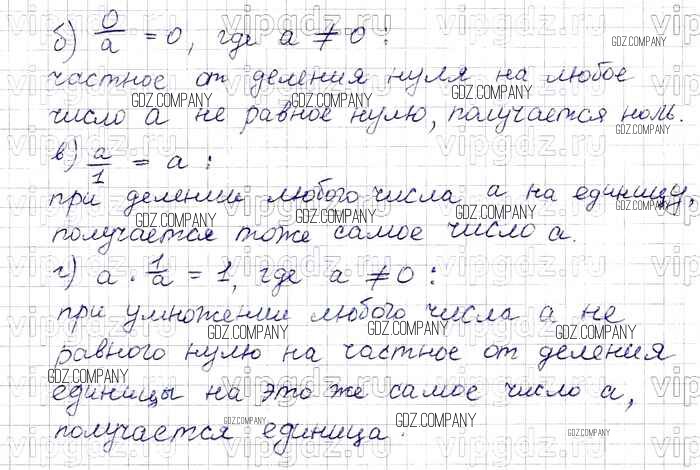 б) 0/a = 0, где a ≠ 0:
частное от деления нуля на любое
число a не равное нулю, получается ноль.
в) a/1 = a:
при делении любого числа a на единицу,
получается тоже самое число a.
г) a · 1/a = 1, где a ≠ 0:
при умножении любого числа a не
равного нулю на частное от деления
единицы на это же самое число a,
получается единица.
vipgdz.ru
GDZ.COMPANY